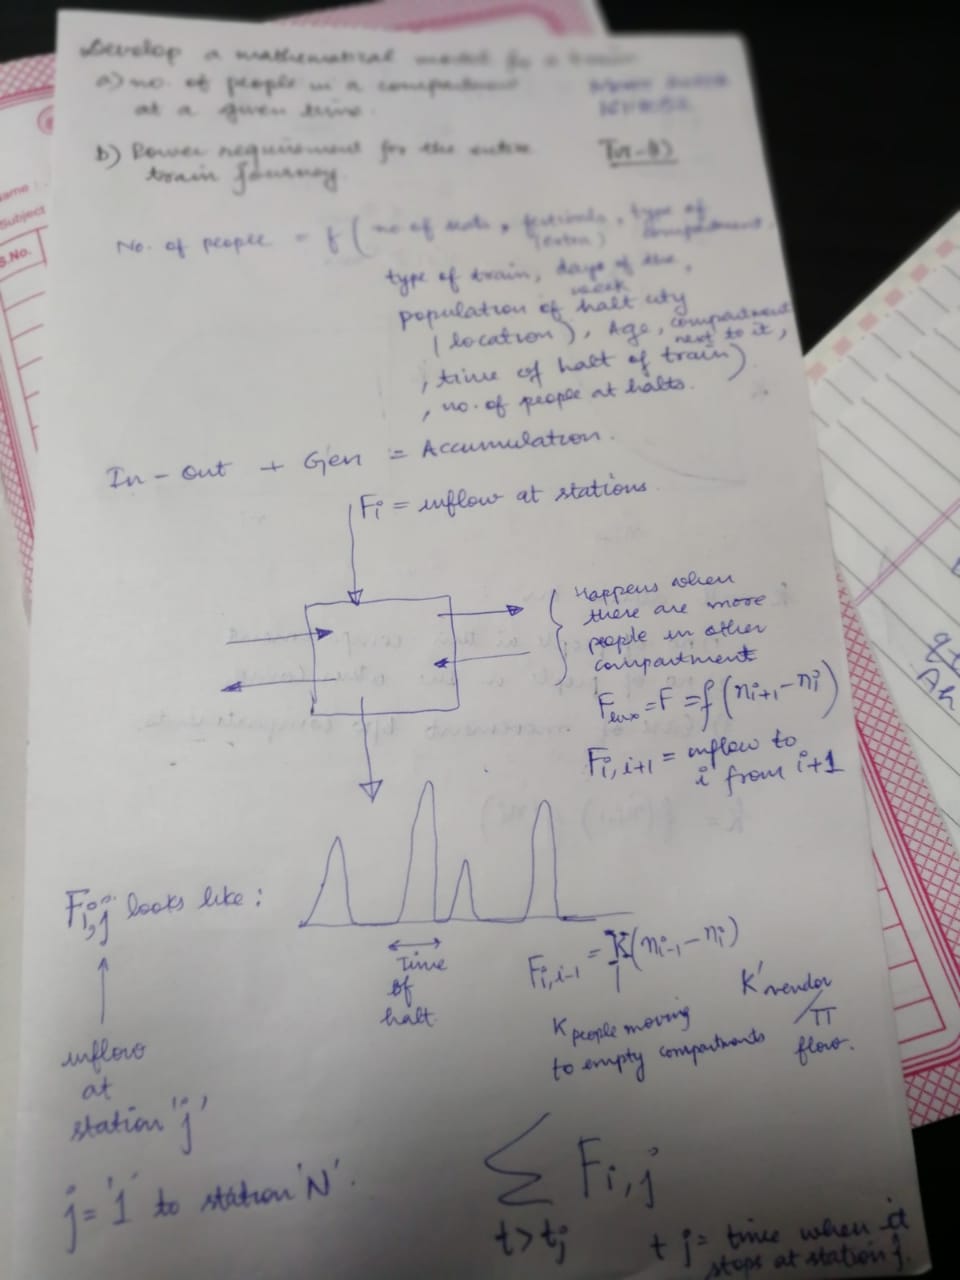 Develop a mathematical model for a train
a) no. of people in a compartment
at a given time.
b) Power requirement for the entire
train journey.
No. of people = f ( no of seats, festivals, type of
(extra) compartment,
type of train, days of the week,
population of halt city
(location), Age, compartment next to it,
, time of halt of train)
, no. of people at halts.
In - out + Gen = Accumulation.
Fi = inflow at stations
Happens when
there are more
people in other
compartment
= F = f (ni+1 - ni)
Fi, i+1 = inflow to
i from i+1
Fi,j looks like :
Time
of
halt
Fi,i-1 = K(ni-1 - ni)
K people moving
to empty compartments
K' vendor
flow.
inflow
at
station 'j'
j = '1' to station 'N'.
Σ Fi,j
t>tj
tj = time when it
stops at station j.
Name :
Subject
S.No.